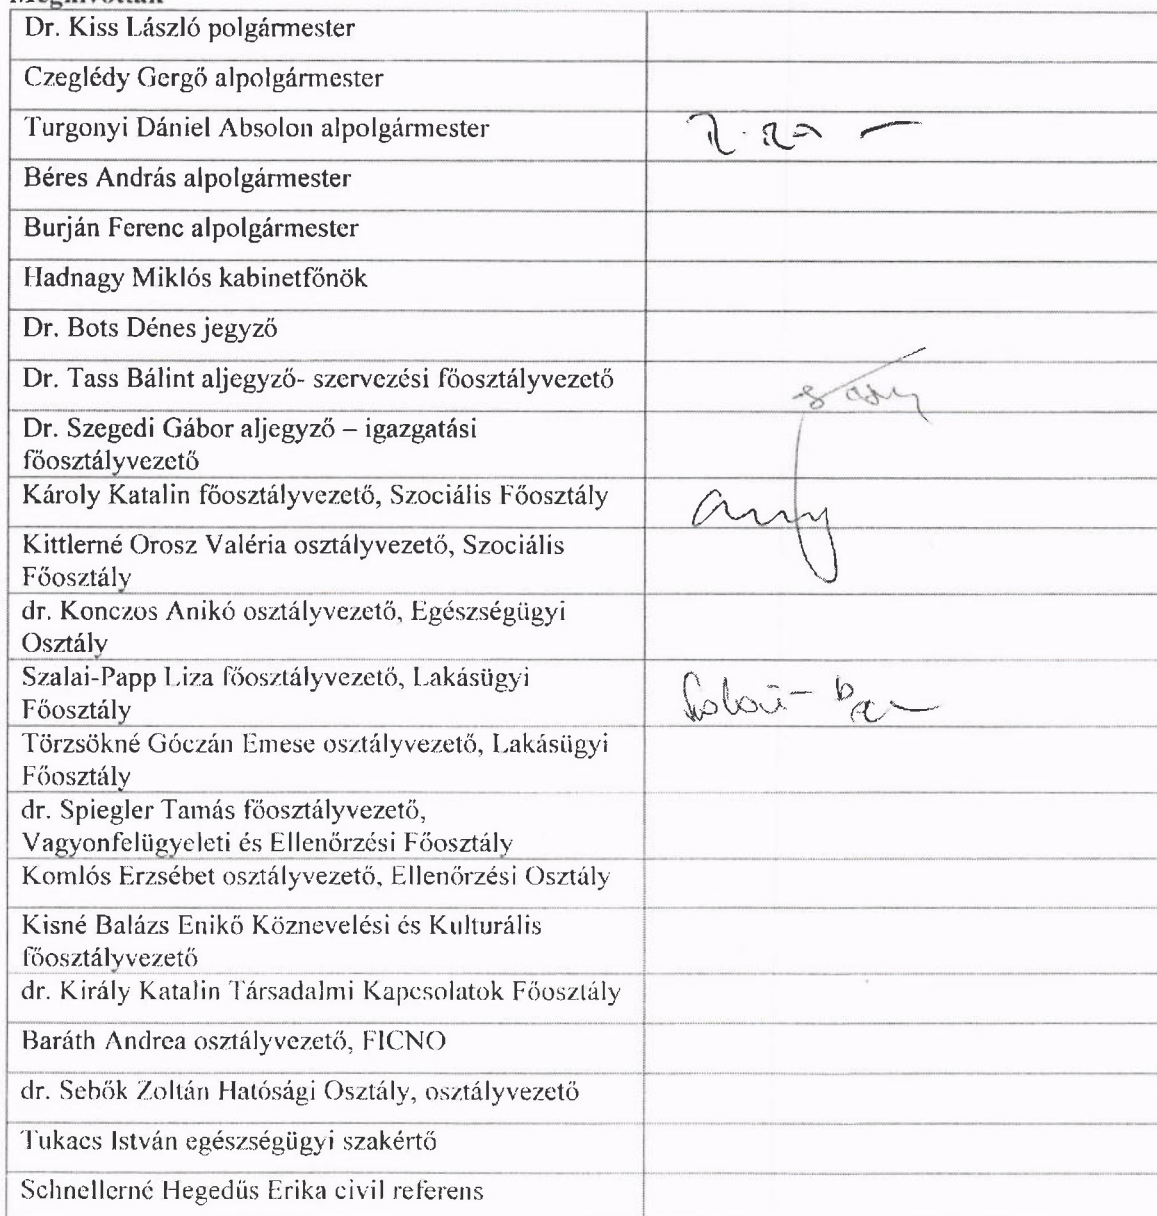 Meghívottak
Dr. Kiss László polgármester
Czeglédy Gergő alpolgármester
Turgonyi Dániel Absolon alpolgármester
Béres András alpolgármester
Burján Ferenc alpolgármester
Hadnagy Miklós kabinetfőnök
Dr. Bots Dénes jegyző
Dr. Tass Bálint aljegyző- szervezési főosztályvezető
Dr. Szegedi Gábor aljegyző – igazgatási
főosztályvezető
Károly Katalin főosztályvezető, Szociális Főosztály
Kittlerné Orosz Valéria osztályvezető, Szociális
Főosztály
dr. Konczos Anikó osztályvezető, Egészségügyi
Osztály
Szalai-Papp Liza főosztályvezető, Lakásügyi
Főosztály
Törzsökné Góczán Emese osztályvezető, Lakásügyi
Főosztály
dr. Spiegler Tamás főosztályvezető,
Vagyonfelügyeleti és Ellenőrzési Főosztály
Komlós Erzsébet osztályvezető, Ellenőrzési Osztály
Kisné Balázs Enikő Köznevelési és Kulturális
főosztályvezető
dr. Király Katalin Társadalmi Kapcsolatok Főosztály
Baráth Andrea osztályvezető, FICNO
dr. Sebők Zoltán Hatósági Osztály, osztályvezető
Tukacs István egészségügyi szakértő
Schnellerné Hegedűs Erika civil referens